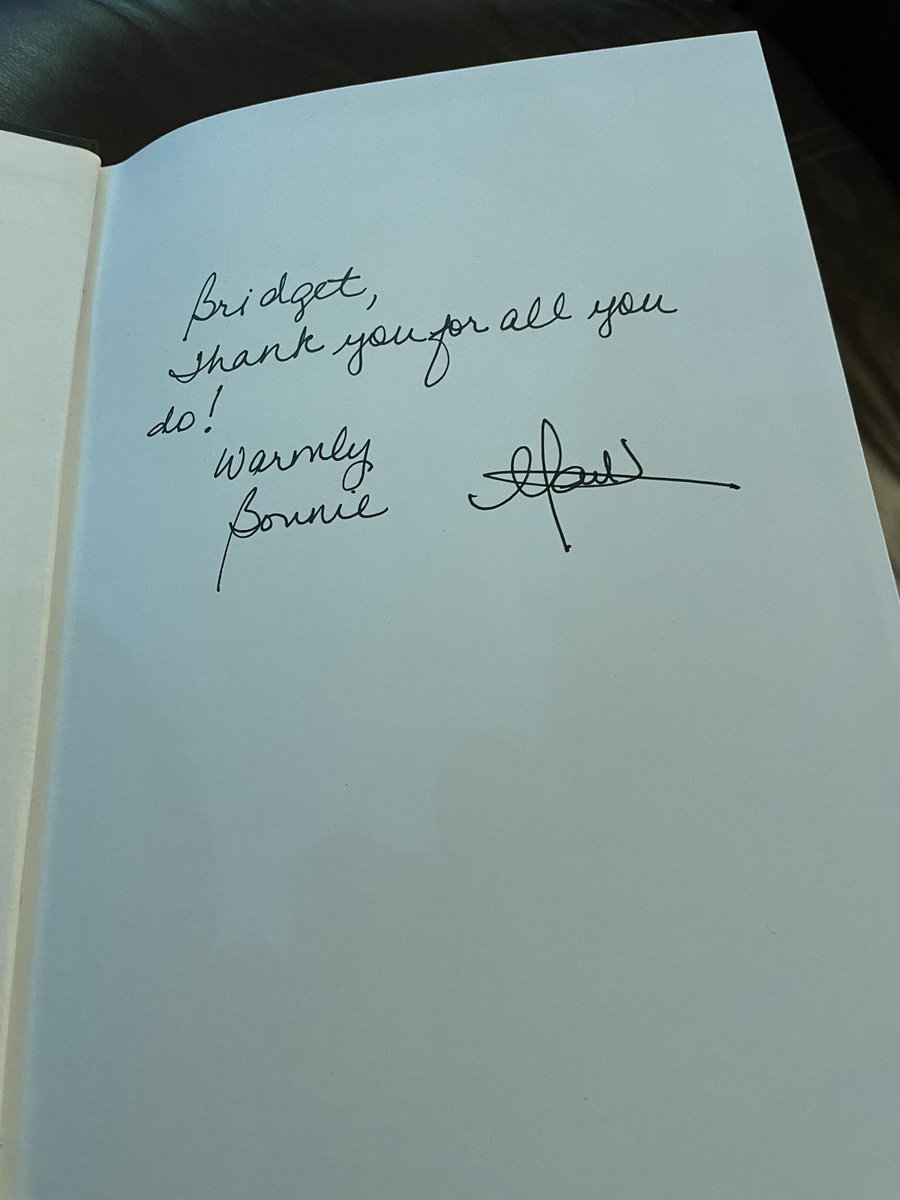 Bridget,
Thank you for all you
do!
Warmly
Bonnie